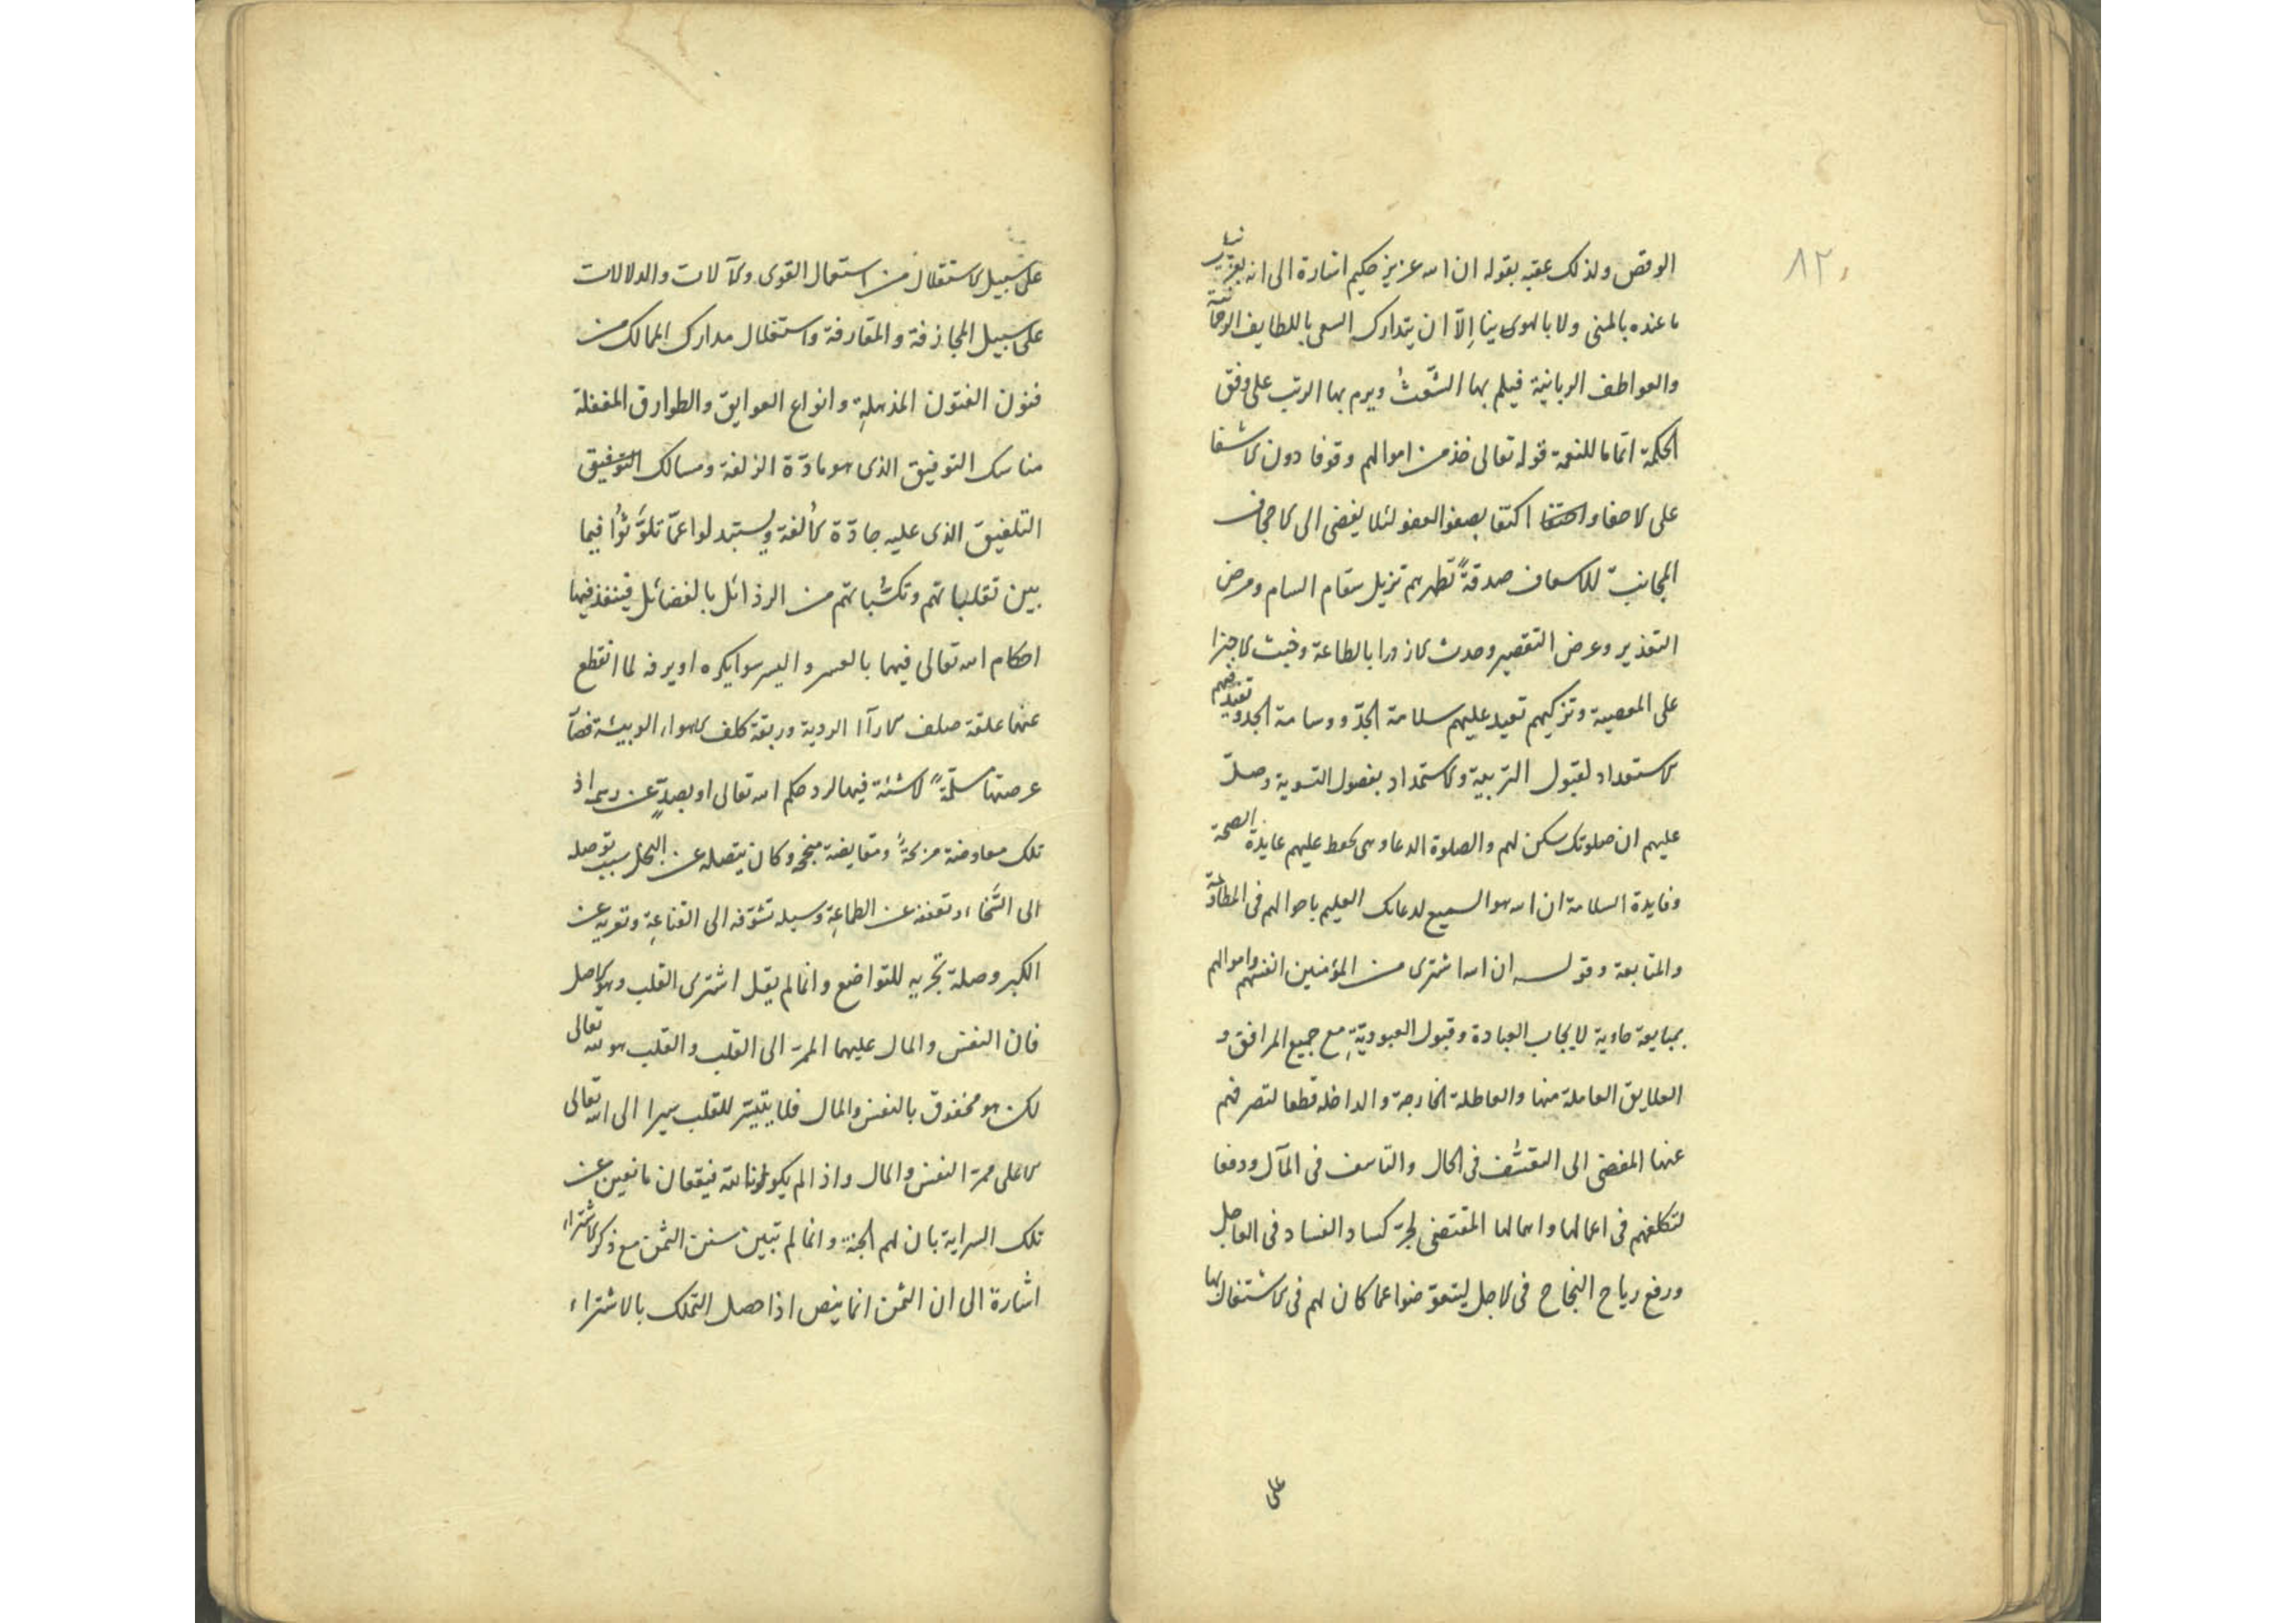 ٨٢
الوقص ولذلك عقبه بقوله ان الله عزيز حكيم اشارة الى انه
ما عنده بالمنى ولا بالهوى ينا إلّا ان يتدارك السعى باللطايف الروحا
والعواطف الربانية فيلم بها الشَّعَثُ ويرم بها الرتب على وفق
الحكمة اتماما للنعمة قوله تعالى خذ من اموالهم وقوفا دون الاشفا
على الاحفا و اكتفا بصفو العفو لئلا يفضى الى الاجحاف
المجانب للاسعاف صدقةً تطهرهم تزيل سقام السام ومرض
التعذير وعرض التقصير وحدث الازورا بالطاعة وخبث الاجترا
على المعصية وتزكيهم تعيد عليهم سلامة الجدّ ووسامة الجد وتفيدهم
الاستعداد لقبول التربية والاستمداد بفصول التسوية وصلّ
عليهم ان صلوتك سكن لهم والصلوة الدعا وهى تحفظ عليهم عايدة الصحة
وفايدة السلامة ان الله هو السميع لدعائك العليم باحوالهم فى المطاوعة
والمتابعة وقوله ان الله اشترى من المؤمنين انفسهم واموالهم
بمبايعة حاوية لايجاب العبادة وقبول العبوديّةِ مع جميع المرافق و
العلايق العاملة منها والعاطلة الخارجة والداخلة قطعا لتصرفهم
عنها المفضى الى التقشّف فى الحال والتاسف فى المآل ودفعا
لتكلفهم فى اعمالها واهمالها المقتضى لجرّ كساد الفساد فى العاجل
ورفع رياح النجاح فى الاجل ليتعوّضوا عما كان لهم فى الاشتغال بها
على
على سبيل الاستقلال من استعمال القوى والآلات والدلالات
على سبيل المجازفة والمقارفة واستغلال مدارك الممالك من
فنون الفتون المذهلةِ وانواع العوايق والطوارق المغفلة
مناسك التوفيق الذى هو مادّة الزلفة ومسالك التوفيق
التلفيق الذى عليه جادّة الألفة ويستبدلوا عمّا تلوَّثوُا فيما
بين تقلباتهم وتكسّباتهم من الرذائل بالفضائل فينفذ فيها
احكام الله تعالى فيهما بالعسر واليسر سوا يكره او يرفه لما انقطع
عنهما علقة صلف الارآا الردية وربقة كلف الاهواء الوبيئة
عرصتها مسلّمةً لاشئة فيها لرد حكم الله تعالى او بصدٍّ عن رسمه اذ
تلك معاوضة مربحةً ومقايضة منجح وكان يتصله عن البخل سبب توصله
الى السَّخاء وتعففه عن الطماعةِ وسيلة تشوّقه الى القناعةِ وتعريه عن
الكبر وصلة تجريه للتواضع وانما لم يقل اشترى القلب وهو الاصل
فان النفس والمال عليهما الممرّ الى القلب والقلب هو لله تعالى
لكن هو محفوف بالنفس والمال فلا يتيسّر للقلب سيرا الى الله تعالى
الا على ممرّ النفس والمال واذا لم يكونا لله فيقعان مانعين عن
تلك السراية بان لهم الجنة وانما لم تبين سنن الثمن مع ذكر الاشتراء
اشارة الى ان الثمن انما ينص اذا حصل التملك بالاشتراء